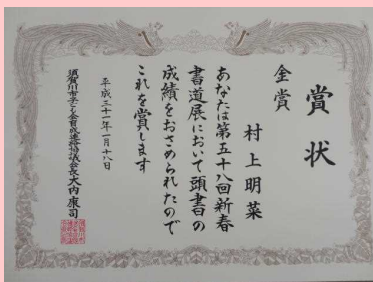 賞状
金賞
村上明菜
あなたは第五十八回新春
書道展において頭書の
成績をおさめられたので
これを賞します
平成三十一年一月十八日
須賀川市子ども会育成連絡協議会長大内康司